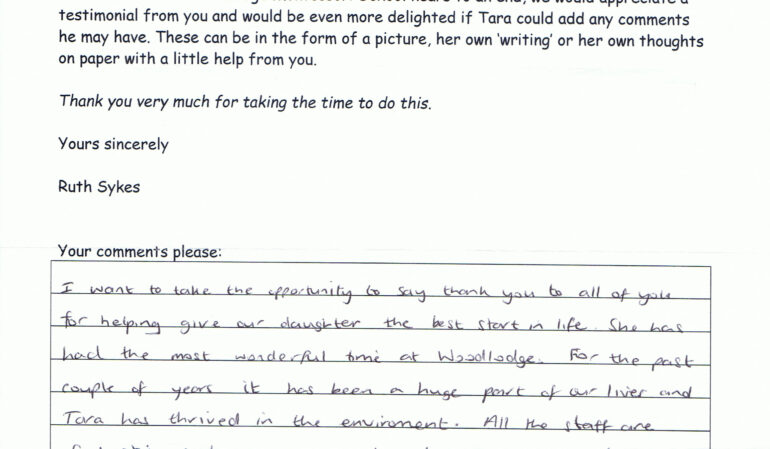 testimonial from you and would be even more delighted if Tara could add any comments
he may have. These can be in the form of a picture, her own 'writing' or her own thoughts
on paper with a little help from you.
Thank you very much for taking the time to do this.
Yours sincerely
Ruth Sykes
Your comments please:
I want to take the opportunity to say thank you to all of you
for helping give our daughter the best start in life. She has
had the most wonderful time at Woodlodge. For the past
couple of years it has been a huge part of our lives and
Tara has thrived in the enviroment. All the staff are